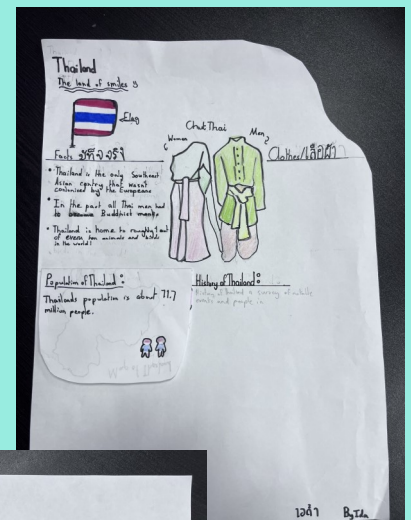 Thailand
The land of smiles
Flag
Chut Thai
Women
Men
Facts
Clothes/เสื้อผ้า
• Thailand is the only Southeast
Asian contry that wasnt
colonised by the Europeans
• In the past all Thai men had
to become Buddhist monks
• Thailand is home to roughly 1 out
of every ten animals and
in the world!
Population of Thailand:
Thailands population is about 71.7
million people.
History of Thailand:
History of Thailand a survey of notable
events and people in
By Ida